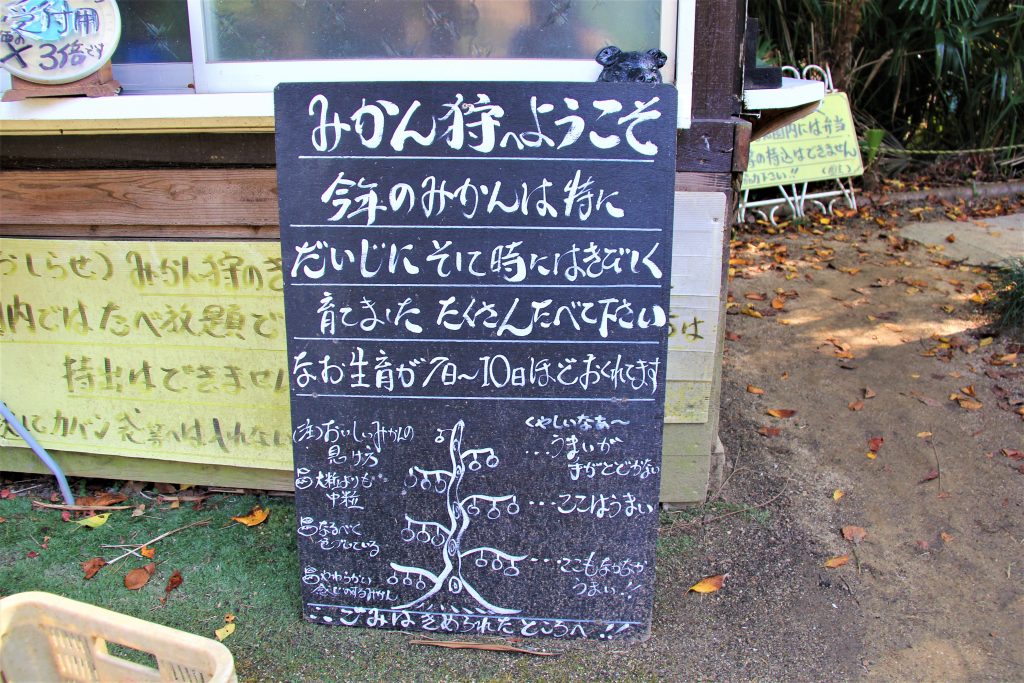 受付用
× 3倍です
みかん狩へようこそ
今年のみかんは特に
だいじにそして時にはきびしく
育てました たくさんたべて下さい
なお生育が7日〜10日ほどおくれてます
(注)おいしいみかんの
見つけ方
大粒よりも
中粒
なるべく
やわらかい
感じのするみかん
くやしいなあ〜
...うまいが
手がとどかない
...ここはうまい
...ここもなかなか
うまい!!
ごみはきめられたところへ!!
おしらせ) みかん狩の
内ではたべ放題で
持出はできません
カバン 袋
は入れない
園内には弁当
の持込はできません
下さい!!